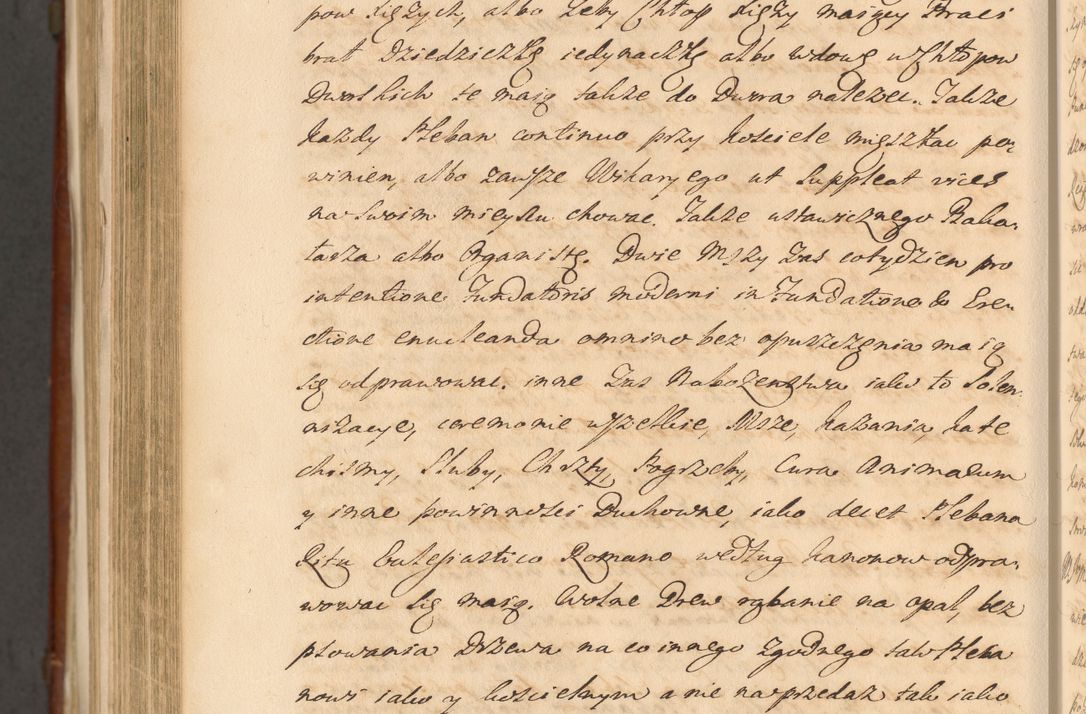 pow Xiężych, albo żeby Chłop Xięży maiący Praes
brał Dziedziczkę iedynaczkę albo wdowę u Chłopow
Dworskich te maią także do Dwora należec. Także
każdy Pleban continuo przy kościele mięszkac po,
winien, albo zawsze Wikaryego ut suppleat vices
na swoim mieyscu chowac. Także ustawicznego Baka,
larza albo Organistę. Dwie Mszy zas cotydzien pro
intentione Fundatoris moderni in Fundatione & Ere,
ctione enucleanda omnino bez opuszczenia maią
się odprawowac. inne zas Nabożenstwa iako to Solen,
nizacye, ceremonie wszelkie, Msze, kazania, kate
chizmy, Sluby, Chrzty, Pogrzeby, Cura Animarum
y inne powinnosci Duchowne, iako decet Plebana
Ritu Eclesiastico Romano według kanonow odpra,
wowac się maią. Wolne Drew rąbanie na opał, bez
psowania Drzewa na co innego zgodnego tak Pleba
nowi iako y koscielnym a nie na przedaż tak iako